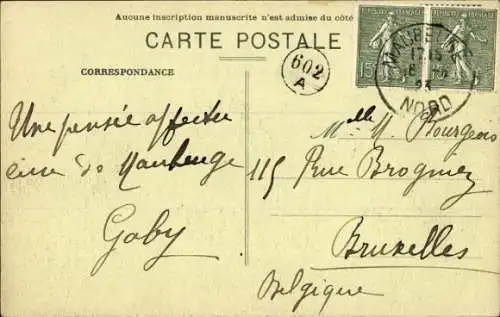 Aucune inscription manuscrite n'est admise du côté
CARTE POSTALE
CORRESPONDANCE
602
A
MAUBEUGE
NORD
15
Une pensée affectu
euse de Maubeuge
Gaby
Mlle M. Bourgeois
115 Rue Brogniez
Bruxelles
Belgique